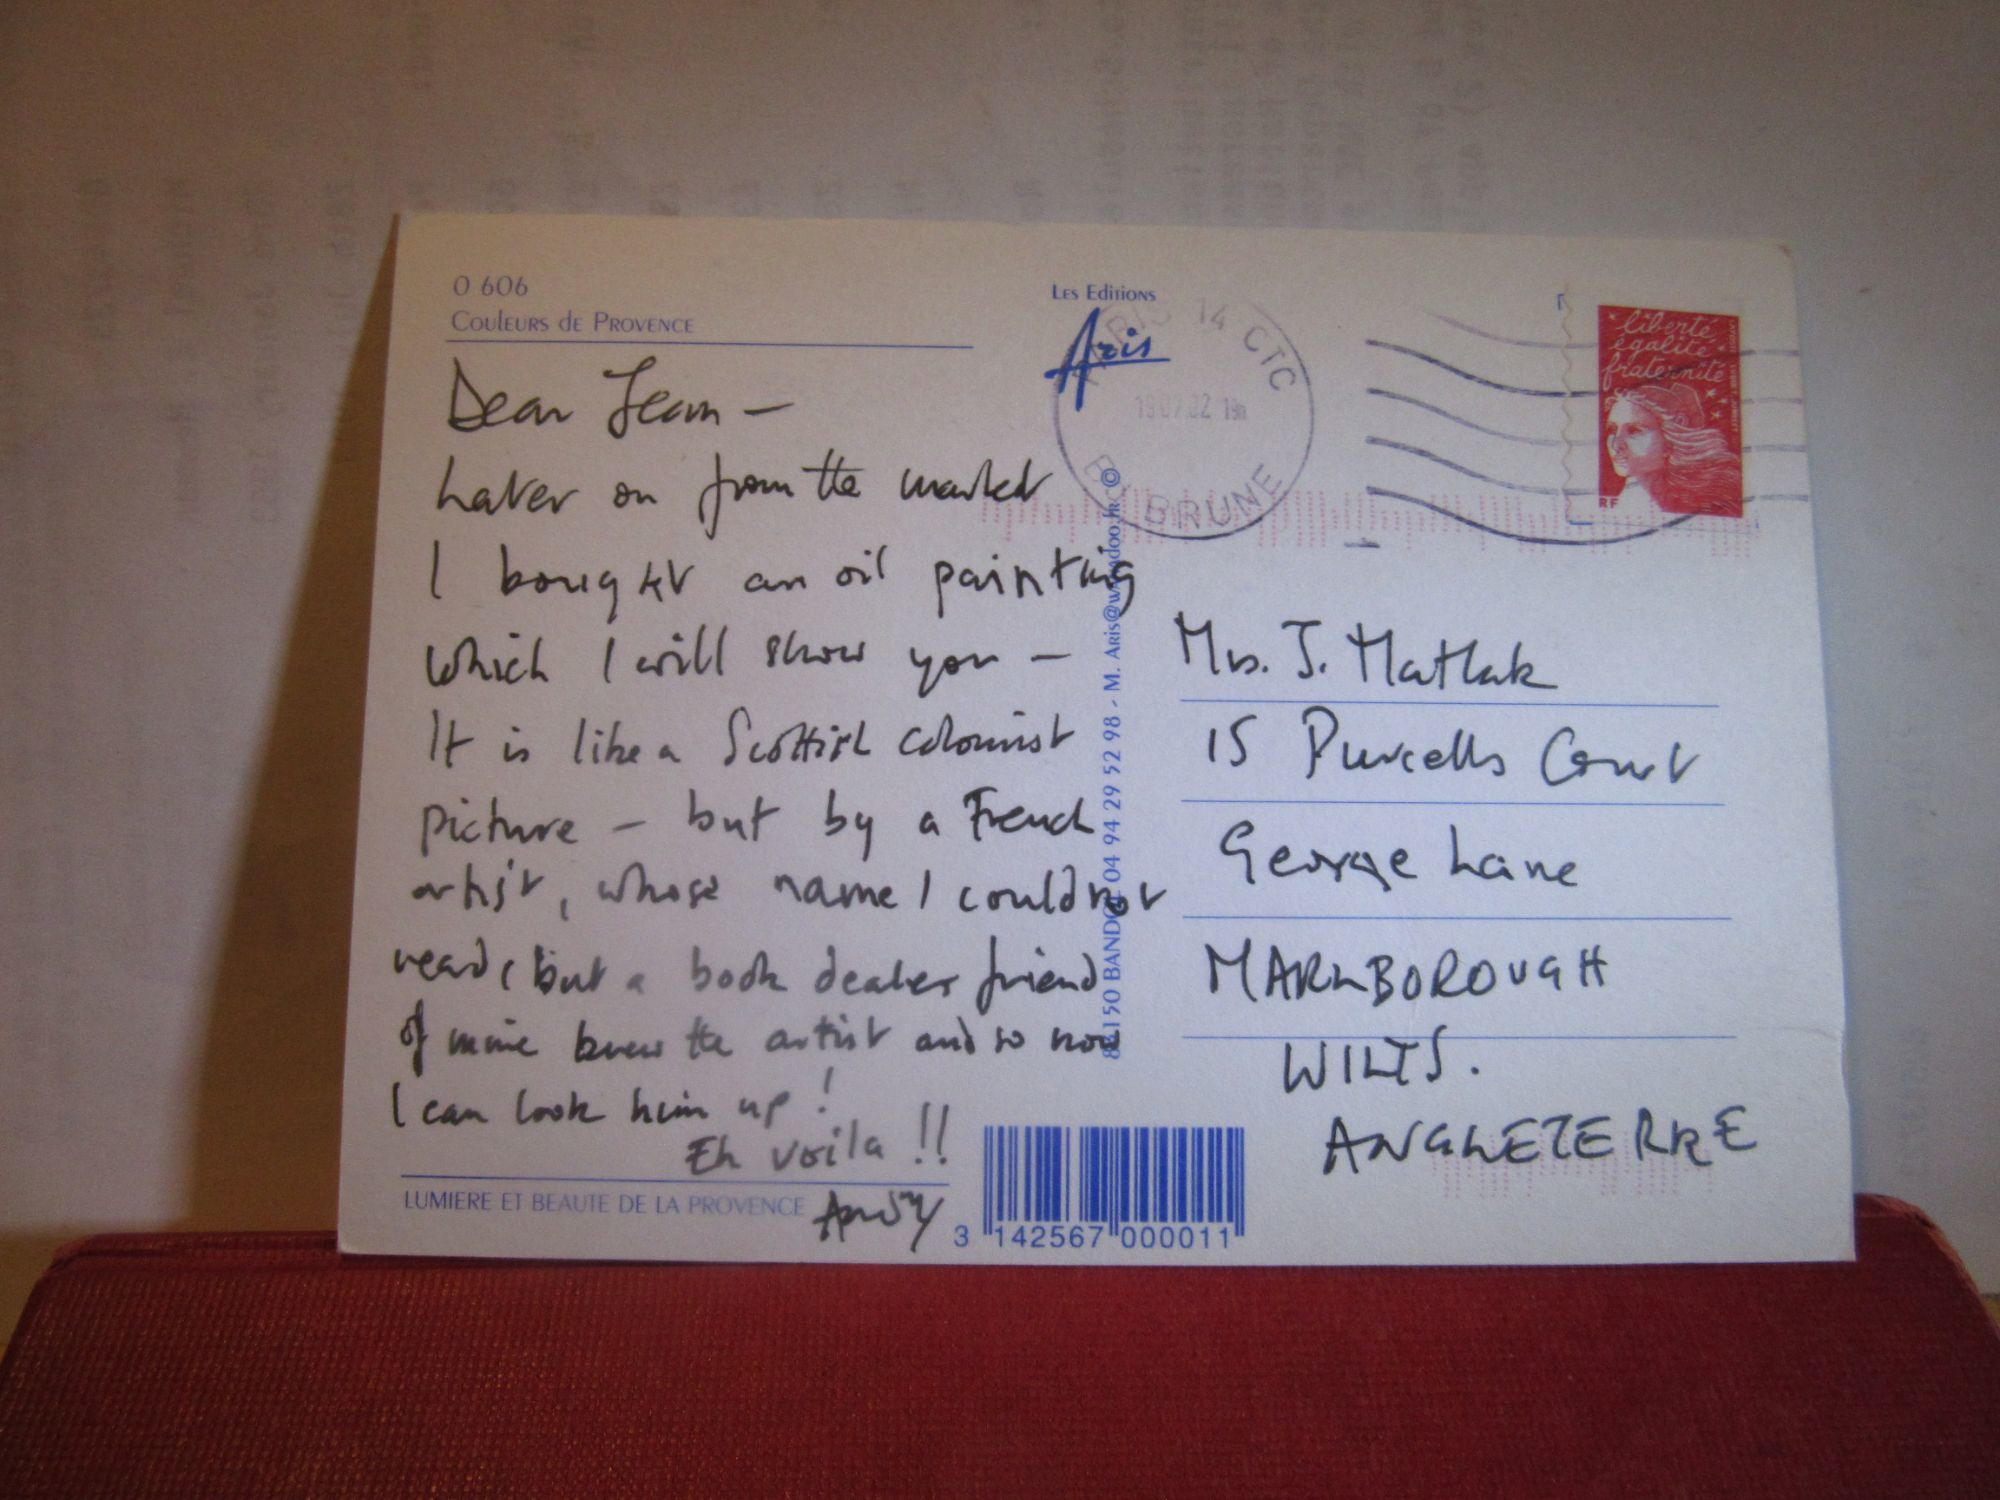 0 606
Couleurs de Provence
Les Editions
Aris
PARIS 14 CTC
19.07.02 19h
BRUNE
liberté
égalité
fraternité
RF
Dear Jean —
Later on from the market
I bought an oil painting
which I will show you —
It is like a Scottish colourist
picture — but by a French
artist, whose name I could not
read, but a book dealer friend
of mine knew the artist and so now
I can look him up!
Eh voila !!
Andy
LUMIERE ET BEAUTE DE LA PROVENCE
3 142567 000011
83150 BANDOL 04 94 29 52 98 - M. Aris@wanadoo.fr ©
Mrs. J. Matlak
15 Purcells Court
George Lane
MARLBOROUGH
WILTS.
ANGLETERRE